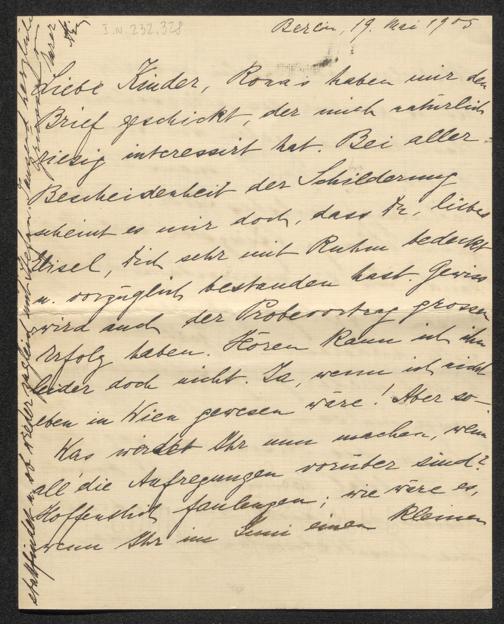 I.N. 232.328
Berlin, 19. Mai 1905
Liebe Kinder, Rosas haben mir den
Brief geschickt, der mich natürlich
riesig interessirt hat. Bei aller
Bescheidenheit der Schilderung
scheint es mir doch, dass Du, liebes
Lisel, Dich sehr mit Ruhm bedeckt
u. vorzüglich bestanden hast. Gewiss
wird auch der Probevortrag grossen
Erfolg haben. Hören kann ich ihn
leider doch nicht. Ja, wenn ich nicht
eben in Wien gewesen wäre! Aber so –
Was werdet Ihr nun machen, wenn
all' die Aufregungen vorüber sind?
Hoffentlich faulenzen; wie wäre es,
wenn Ihr im Juni einen kleinen
stattfindet u. ob